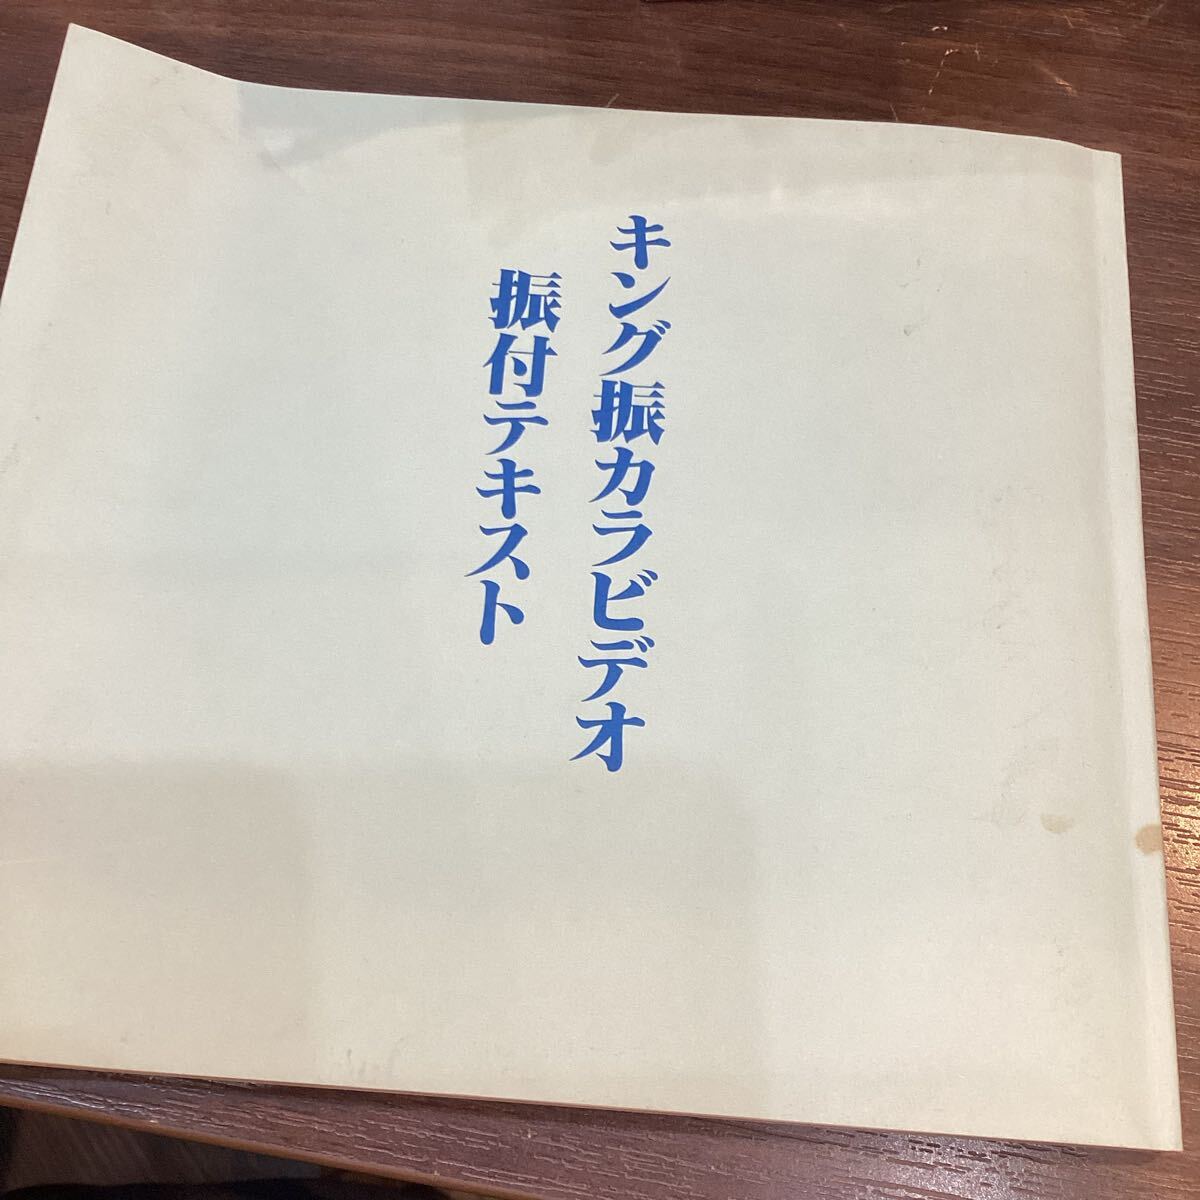 キング振カラビデオ
振付テキスト